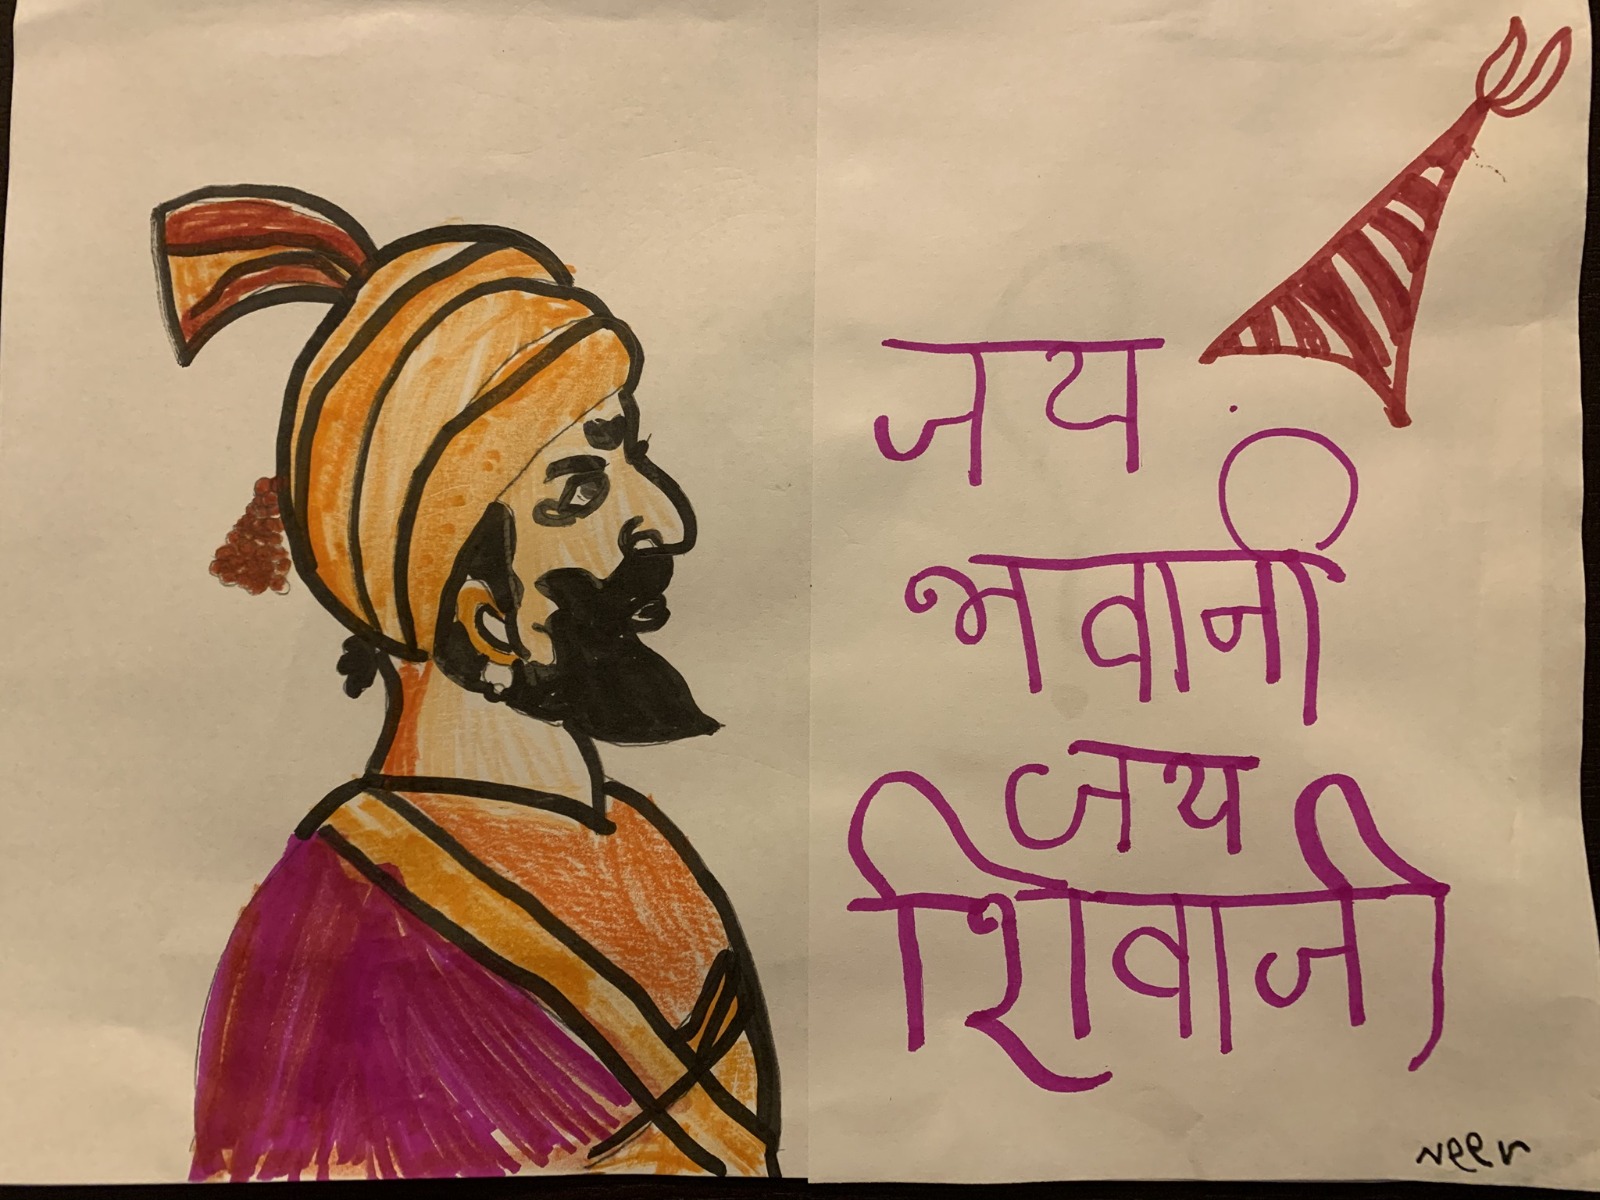 जय
भवानी
जय
शिवाजी
neer